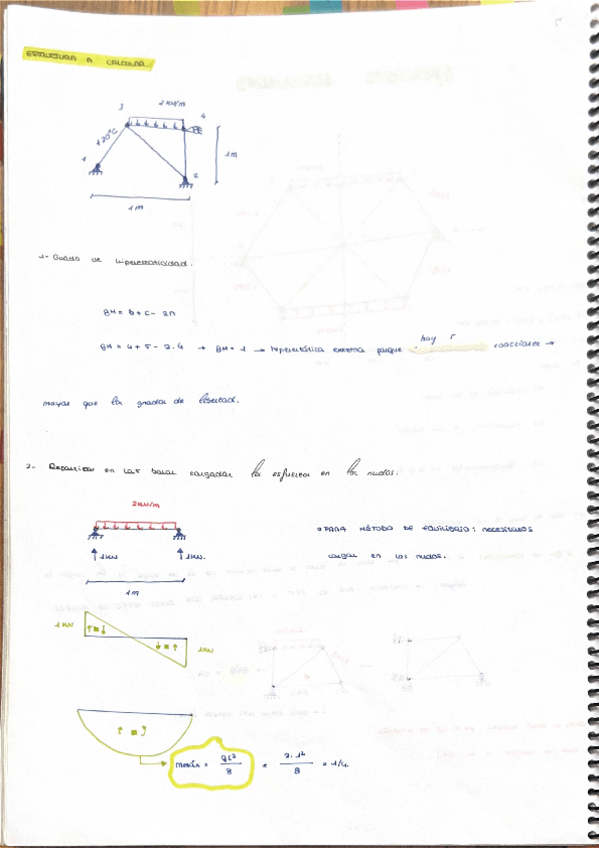 ESTRUCTURA A CALCULAR.
3
2 kN/m
4
+20°C
1
2
1m
1m
1- Grado de hiperestaticidad.
GH = b + c - 2n
GH = 4 + 5 - 2.4 → GH = 1 → hiperestática externa porque hay 5 coacciones →
mayor que los grados de libertad.
2- Repartir en las barras cargadas los esfuerzos en los nudos.
2kN/m
1kN
1kN.
1m
* PARA MÉTODO DE EQUILIBRIO: necesitamos
cargas en los nudos.
1 kN
1kN
Mmáx = qL²/8 = 2.1²/8 = 1/4